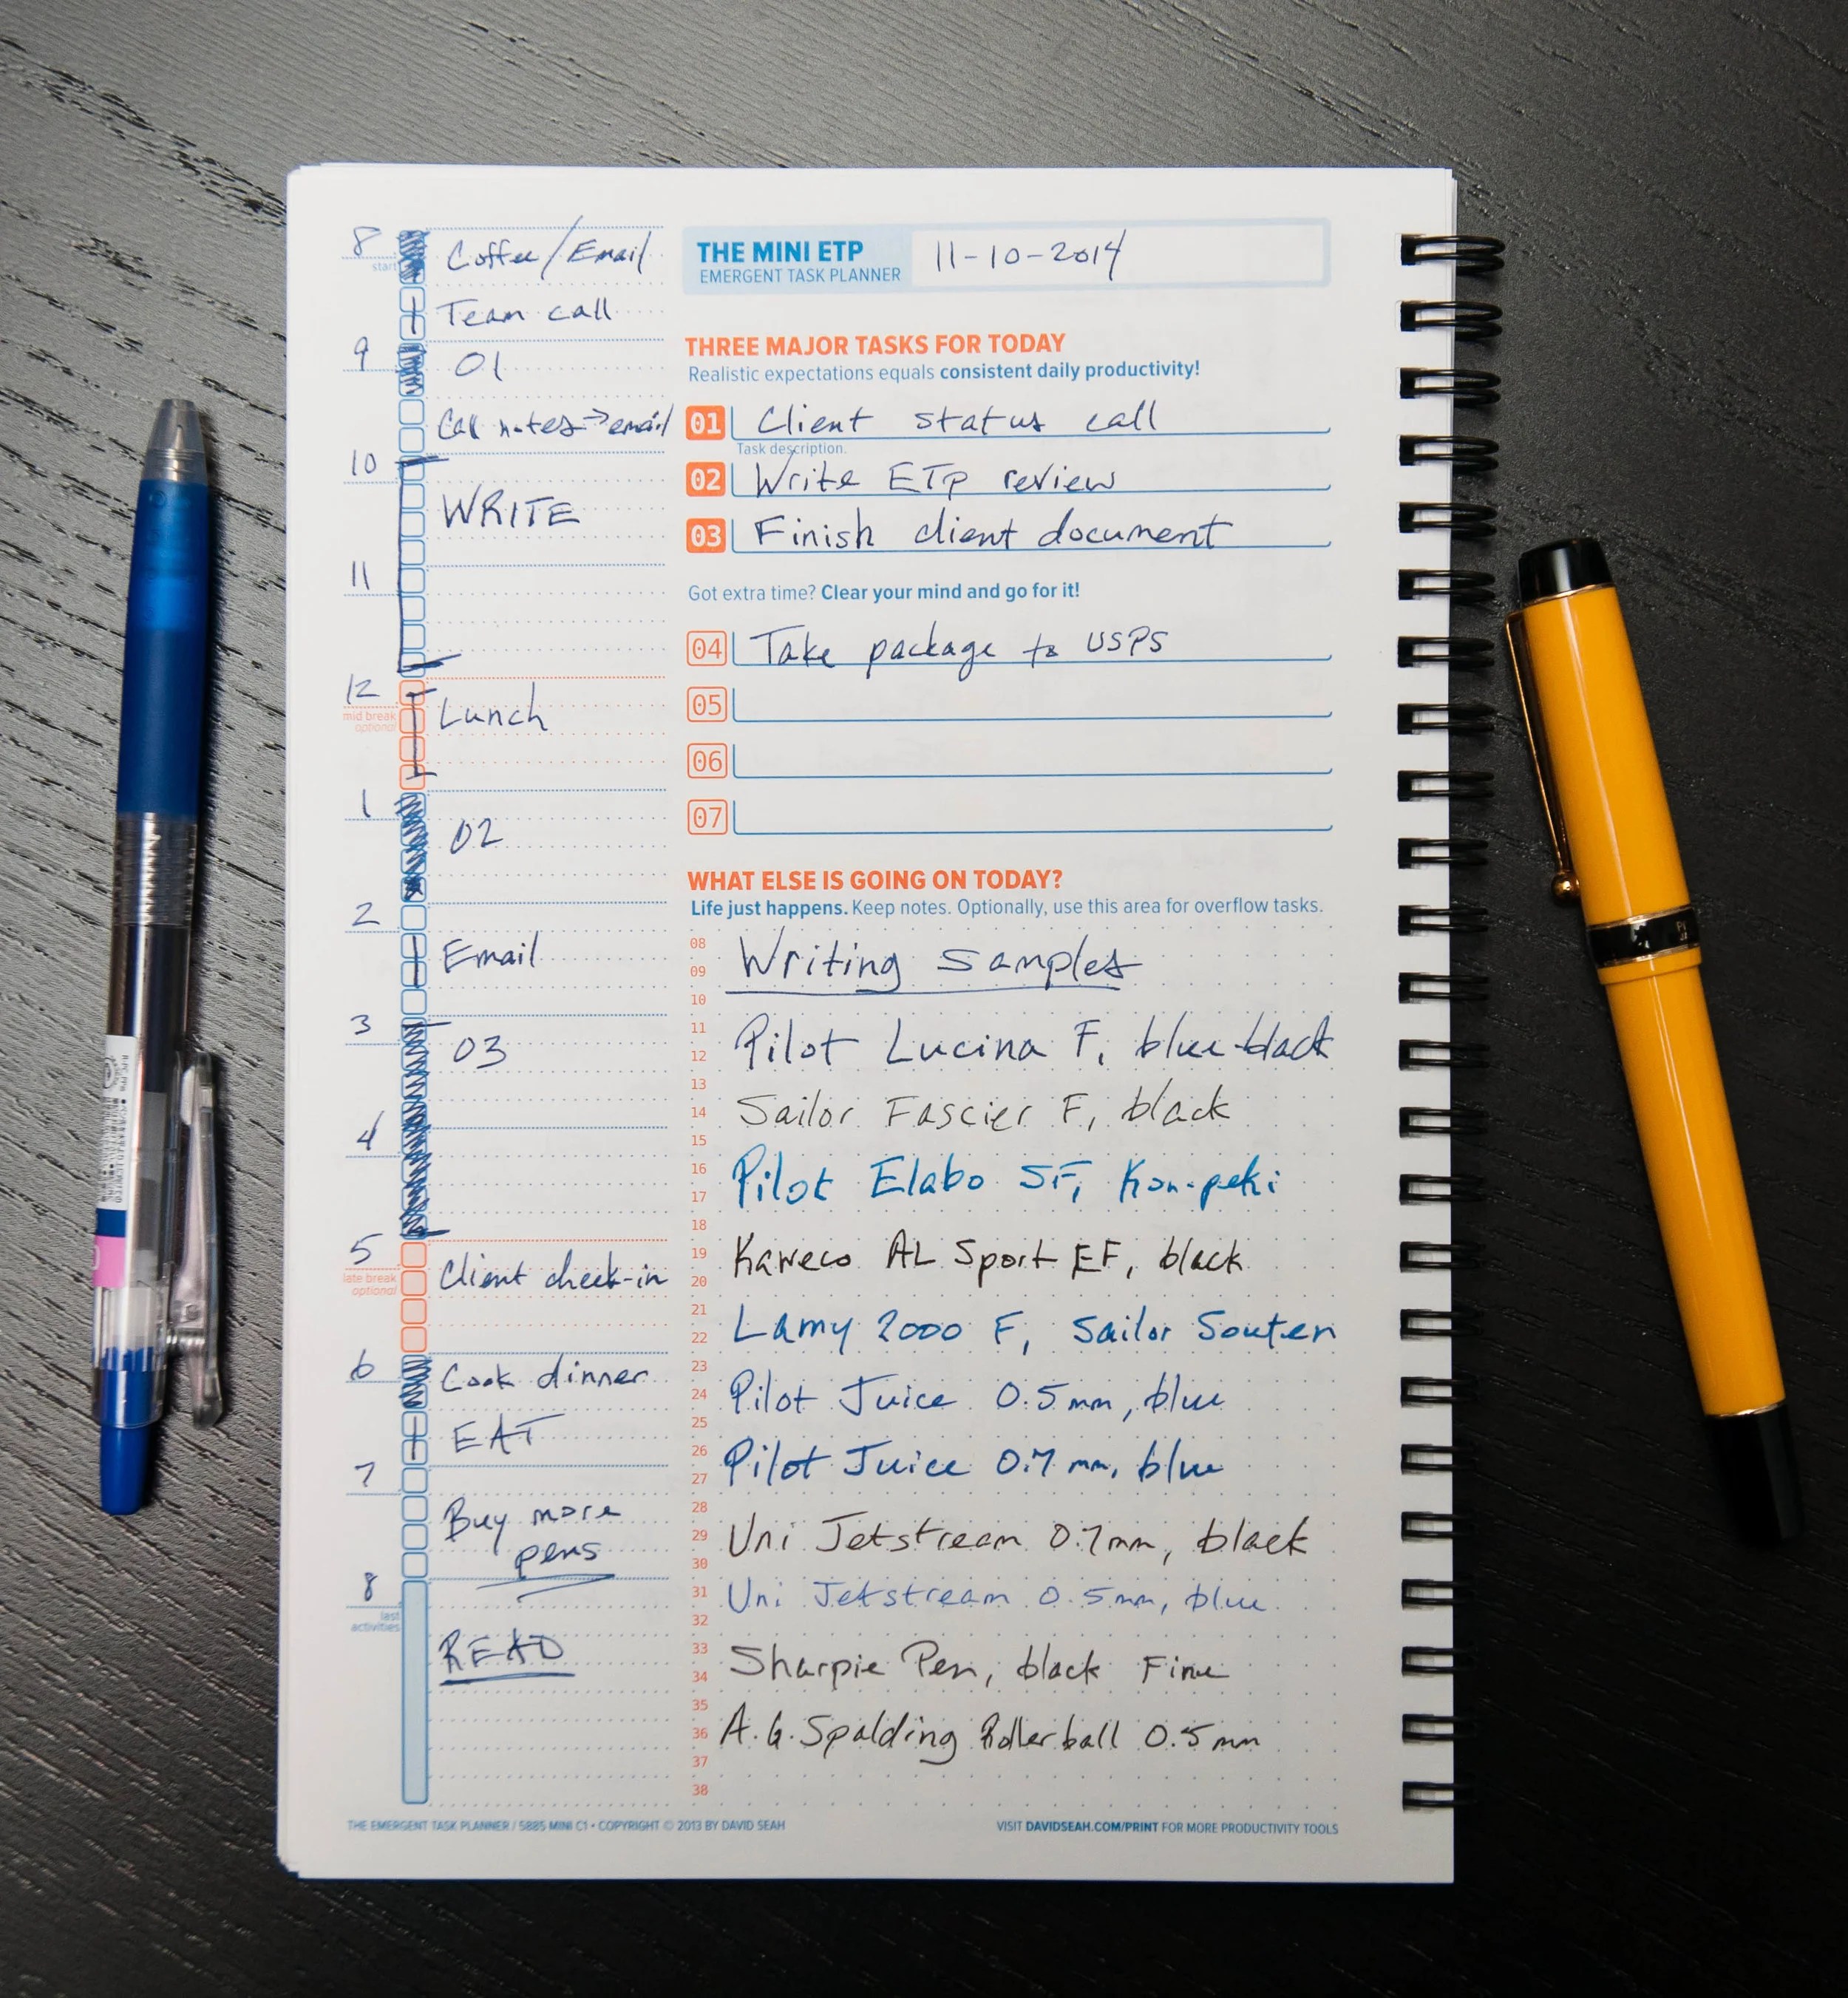 8
start
Coffee/Email
Team call
9
01
Call notes → email
10
WRITE
11
12
mid break
optional
Lunch
1
02
2
Email
3
03
4
5
late break
optional
Client check-in
6
Cook dinner
EAT
7
Buy more
pens
8
last
activities
READ
THE MINI ETP
EMERGENT TASK PLANNER
11-10-2014
THREE MAJOR TASKS FOR TODAY
Realistic expectations equals consistent daily productivity!
01 Client status call
Task description.
02 Write ETP review
03 Finish client document
Got extra time? Clear your mind and go for it!
04 Take package to USPS
05
06
07
WHAT ELSE IS GOING ON TODAY?
Life just happens. Keep notes. Optionally, use this area for overflow tasks.
08
09 Writing Samples
10
11
12 Pilot Lucina F, blue-black
13
14 Sailor Fascier F, black
15
16
17 Pilot Elabo SF, Kon-peki
18
19 Kaweco AL Sport EF, black
20
21
22 Lamy 2000 F, Sailor Souten
23
24 Pilot Juice 0.5mm, blue
25
26
27 Pilot Juice 0.7 mm, blue
28
29 Uni Jetstream 0.7mm, black
30
31 Uni Jetstream 0.5mm, blue
32
33
34 Sharpie Pen, black Fine
35
36 A.G. Spalding Rollerball 0.5mm
37
38
THE EMERGENT TASK PLANNER / 5885 MINI C1 • COPYRIGHT © 2013 BY DAVID SEAH
VISIT DAVIDSEAH.COM/PRINT FOR MORE PRODUCTIVITY TOOLS